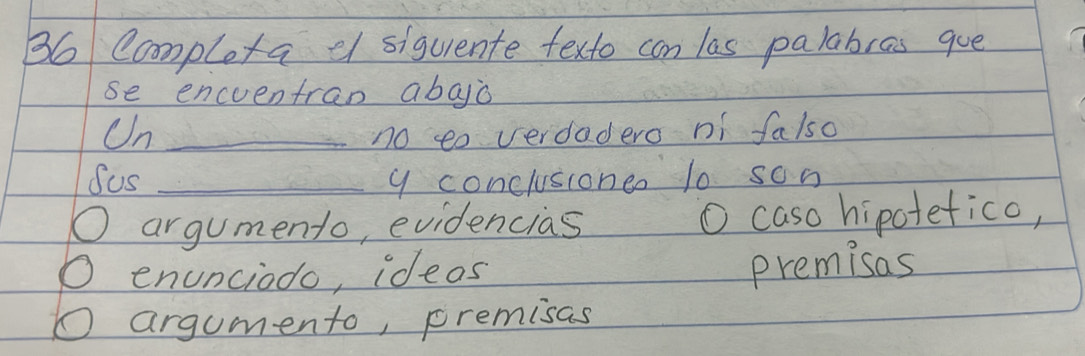 36 Completa el siguiente texto con las palabras que
se encuentran abajo
Un ________ no es verdadero ni falso
Sus ________ y conclusiones lo son
O argumento, evidencias O caso hipotetico,
O enunciado, ideas premisas
O argumento, premisas